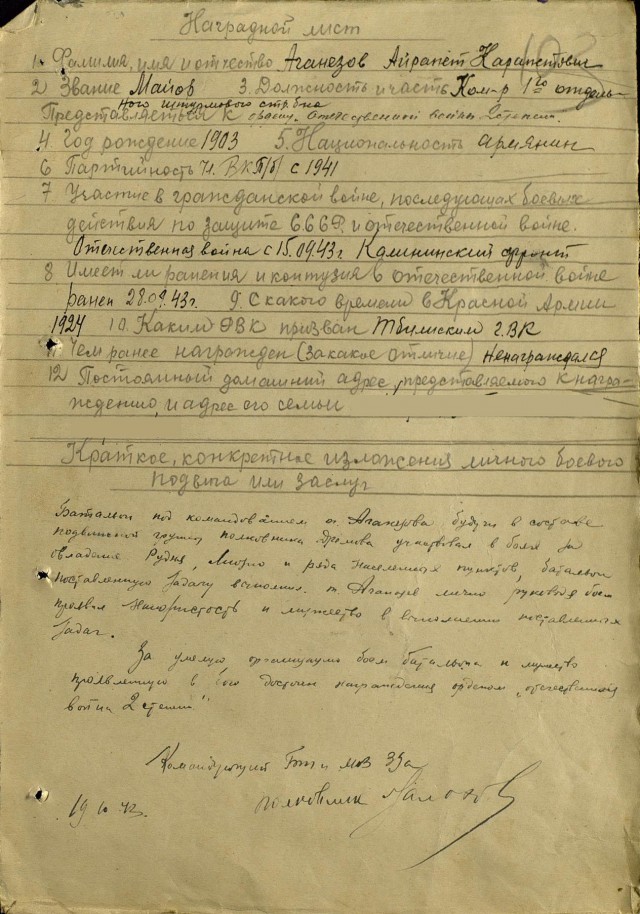 Наградной лист
103
1. Фамилия, имя и отчество Аганезов Айрапет Карапетович
2 Звание Майор 3. Должность и часть Ком-р 1го отдель-
ного штурмового стр. б-на
Представляеться к ордену Отечественной войны 2 степени.
4 Год рождение 1903 5. Национальность армянин
6 Партийность Чл. ВКП/б/ с 1941
7 Участие в гражданской войне, последующах боевых
действия по защите СССР. и отечественной войне.
Отечественная война с 15.09.43г Калининский фронт
8 Имеет ли ранения и контузия в отечественной войне
ранен 28.09.43г. 9. С какого времени в Красной Армии
1924 10. Каким РВК призван Тбилиским ГВК
11 Чем ранее награжден (за какое отличие) ненаграждался
12 Постоянный домашний адрес, представляемого к награ-
ждению, и адрес его семьи
Краткое, конкретное изложения личного боевого
подвига или заслуг
Батальон под командованием т. Аганезова будучи в составе
подвижной группы полковника Дремова участвовал в боях за
овладение Рудня, Лиозно и ряда населенных пунктов, батальон
поставленную задачу выполнил. т. Аганезов лично руководя боем
проявил напористость и мужество в выполнении поставленных
задач.
За умелую организацию боя батальона и мужество
проявленную в бою достоин награждения орденом „отечественной
война 2 степни"
Командующий БТ и МВ 39а
полковник
19 10 43.